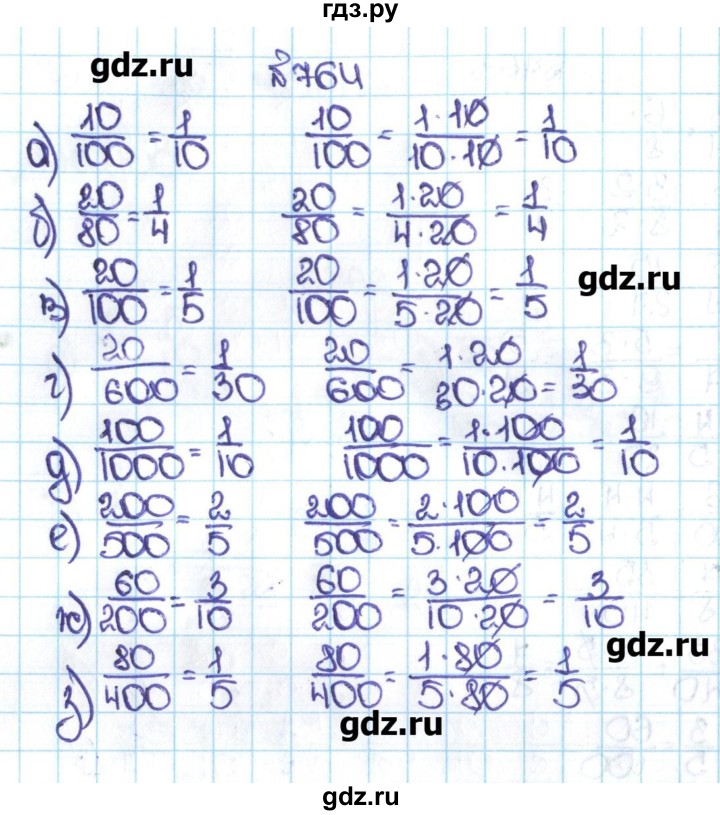 гдз.ру
gdz.ru
№764
а) 10/100 = 1/10   10/100 = 1·10/10·10 = 1/10
б) 20/80 = 1/4   20/80 = 1·20/4·20 = 1/4
в) 20/100 = 1/5   20/100 = 1·20/5·20 = 1/5
gdz.ru
г) 20/600 = 1/30   20/600 = 1·20/30·20 = 1/30
д) 100/1000 = 1/10   100/1000 = 1·100/10·100 = 1/10
е) 200/500 = 2/5   200/500 = 2·100/5·100 = 2/5
ж) 60/200 = 3/10   60/200 = 3·20/10·20 = 3/10
gdz.ru
з) 80/400 = 1/5   80/400 = 1·80/5·80 = 1/5
gdz.ru
gdz.ru